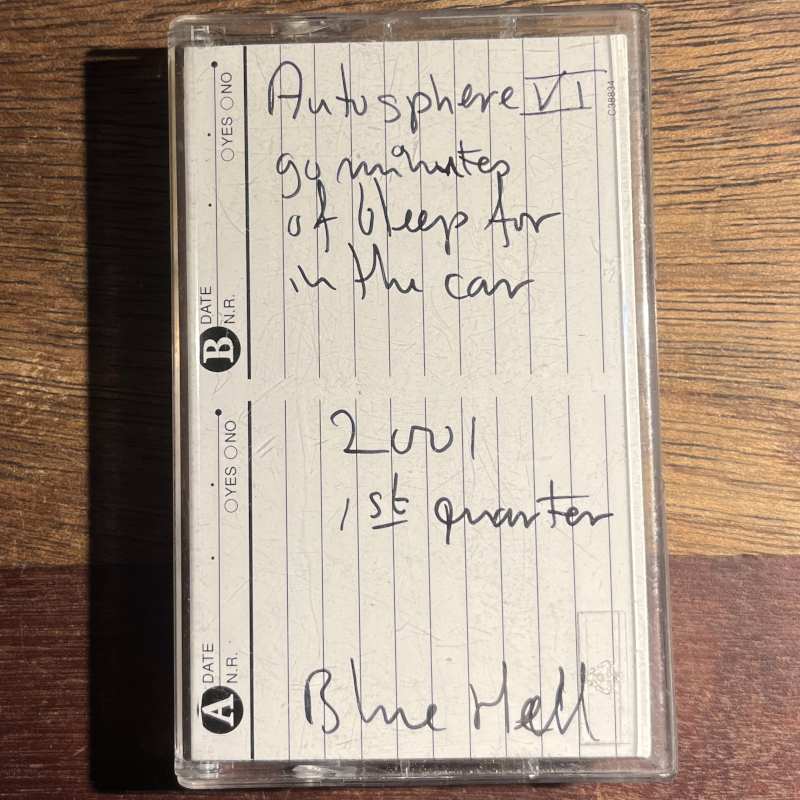 Autosphere VI
90 minutes
of bleep for
in the car
2001
1st quarter
Blue Hell
B DATE
N.R.
YES NO
A DATE
N.R.
YES NO
C38834